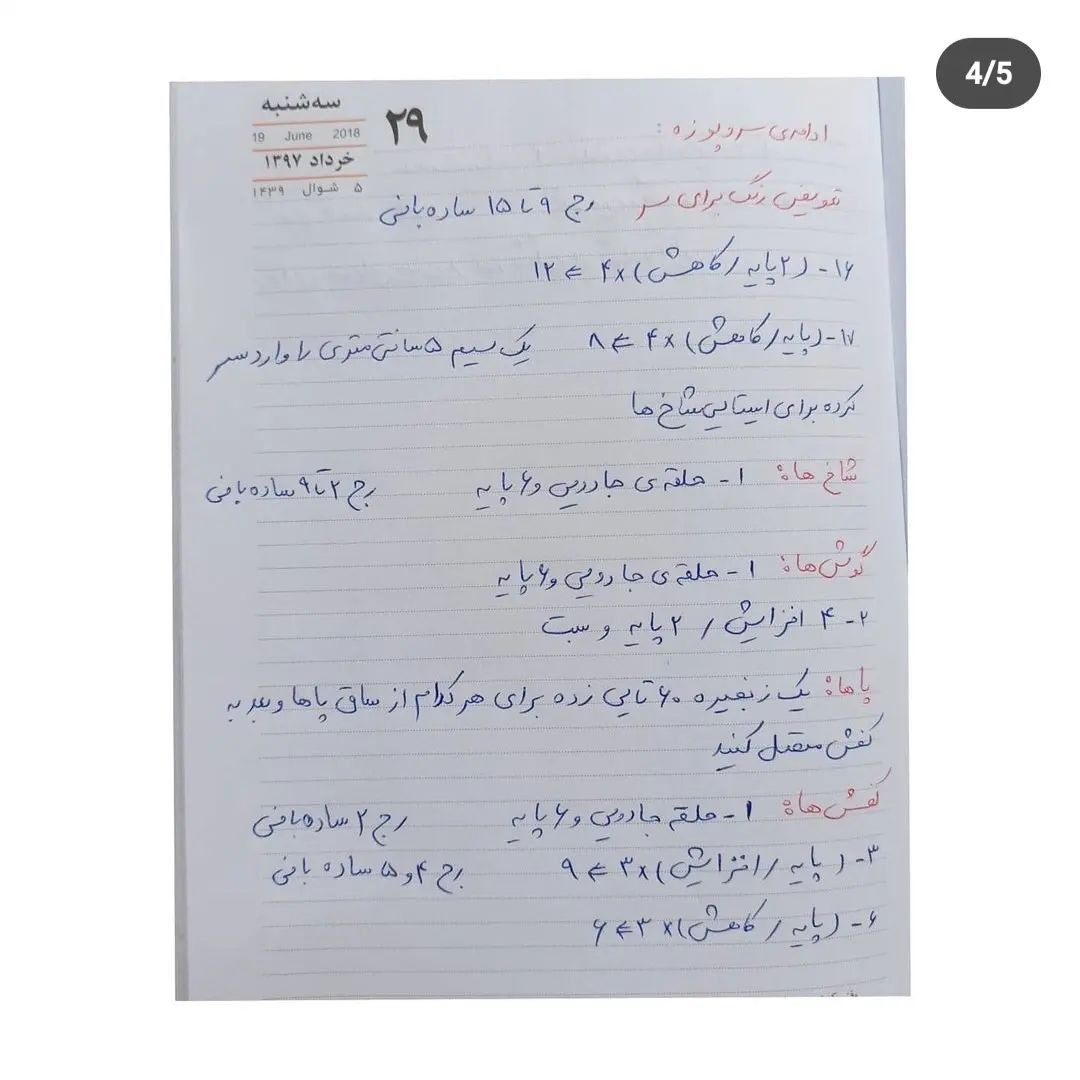 4/5
سه‌شنبه
۲۹
19 June 2018
خرداد ۱۳۹۷
۵ شوال ۱۴۳۹
ادامه‌ی سر و پوزه :
تعویض رنگ برای سر رج ۹ تا ۱۵ ساده بافی
۱۶- (۲ پایه / کاهش) ×۴ ⇐ ۱۲
۱۷- (پایه / کاهش) ×۴ ⇐ ۸ یک سیم ۵ سانتی متری را وارد سر
کرده برای ایستایی شاخ ها
شاخ ها: ۱- حلقه ی جادویی و ۶ پایه رج ۲ تا ۹ ساده بافی
گوش ها: ۱- حلقه ی جادویی و ۶ پایه
۲- ۴ افزایش / ۲ پایه و بست
پاها: یک زنجیره ۶۰ تایی زده برای هر کدام از ساق پاها و بعد به
کفش متصل کنید
کفش ها: ۱- حلقه جادویی و ۶ پایه رج ۲ ساده بافی
۳- (پایه / افزایش) ×۳ ⇐ ۹ رج ۴ و ۵ ساده بافی
۶- (پایه / کاهش) ×۳ ⇐ ۶